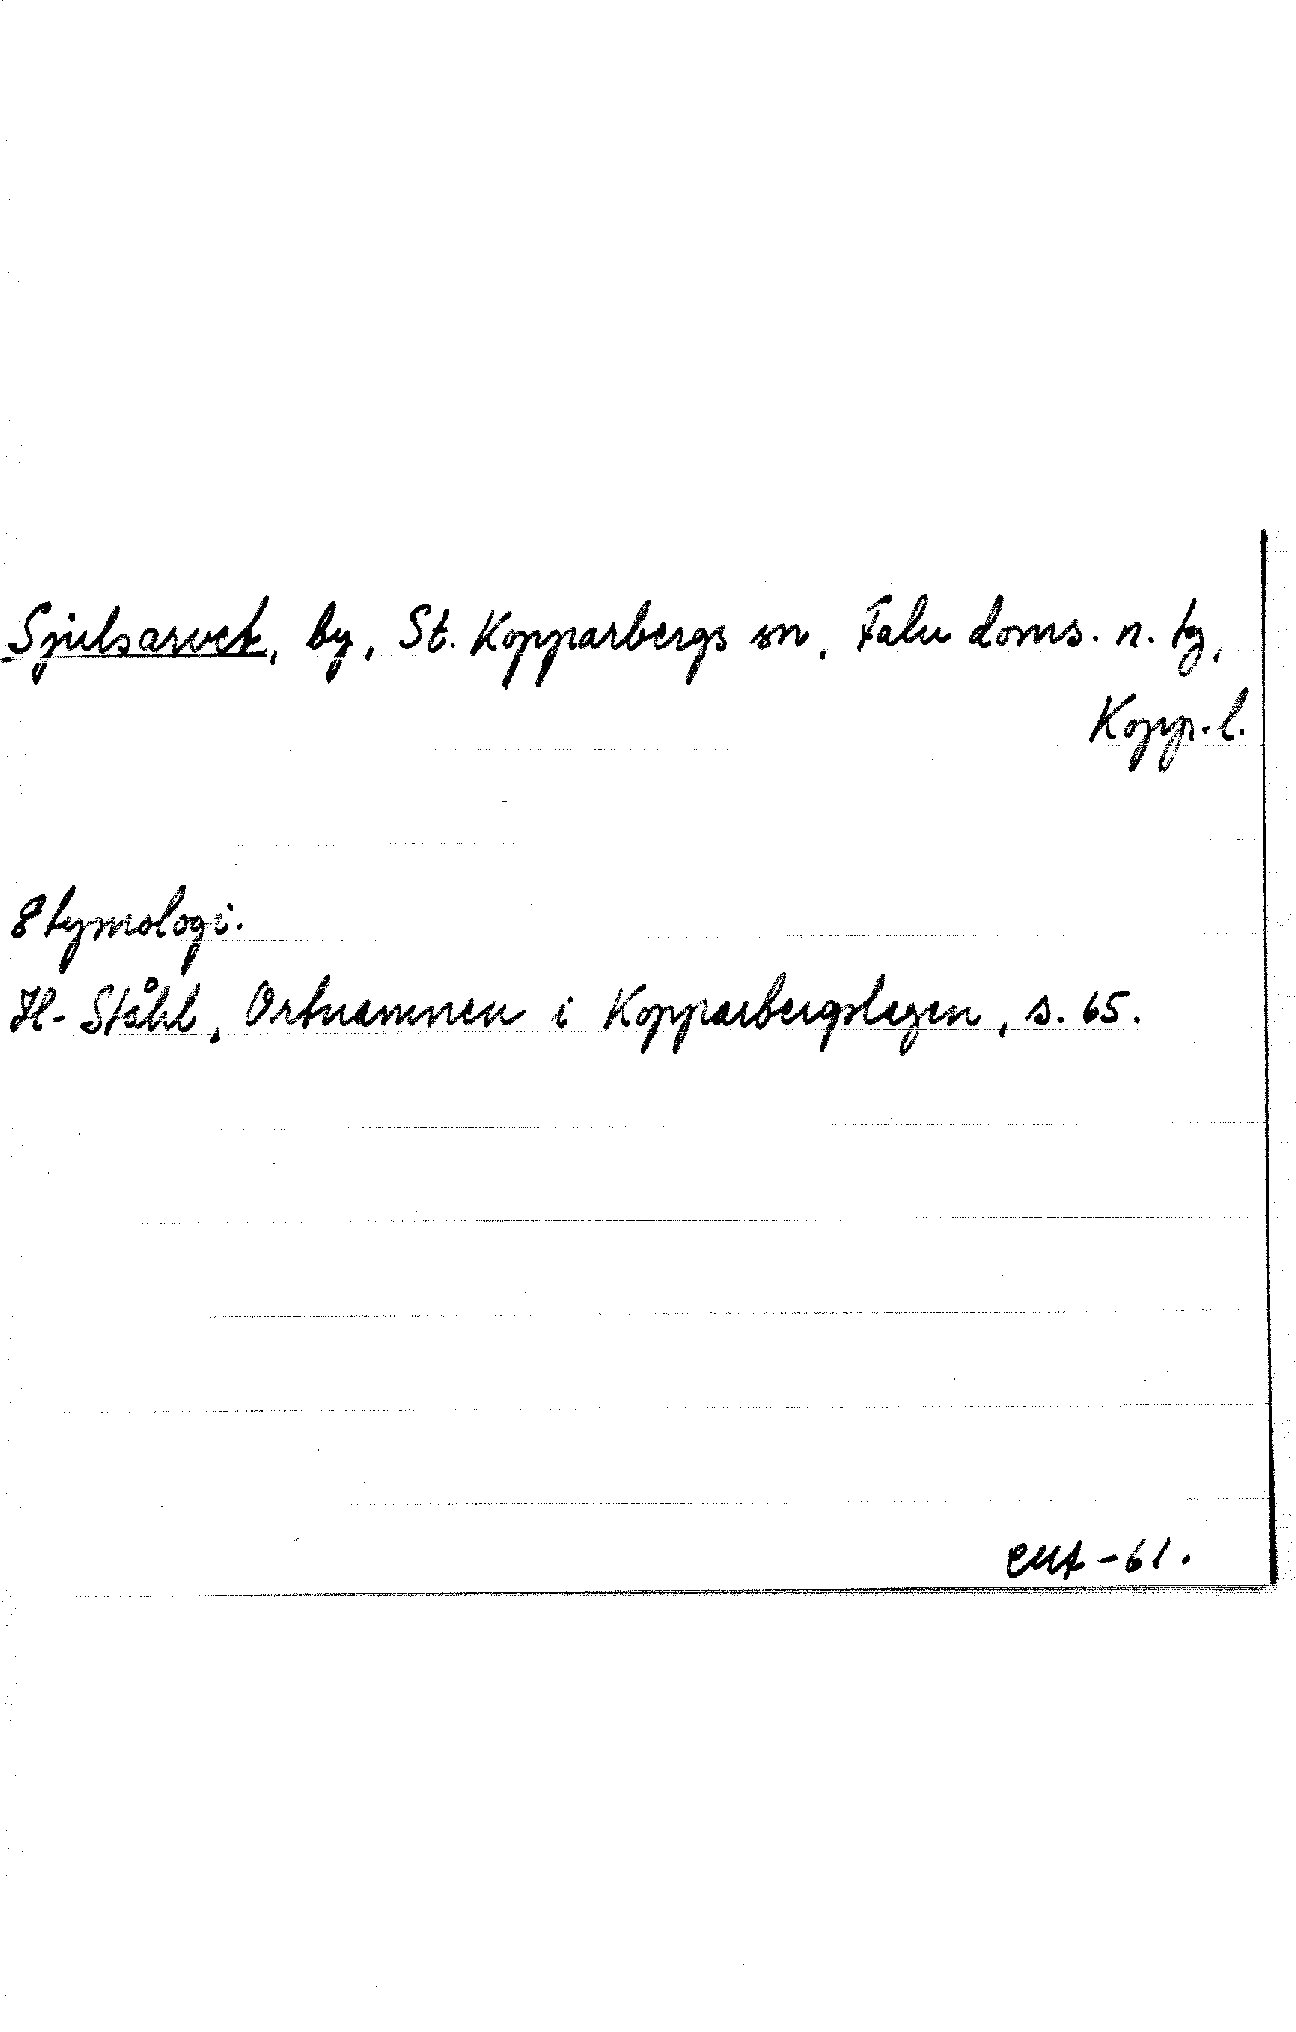 Sjulsarvet, by, St. Kopparbergs sn, Falu doms. n. tg,
Kopp. l.
Etymologi.
H. Ståhl, Ortnamnen i Kopparbergslagen, s. 65.
-61.